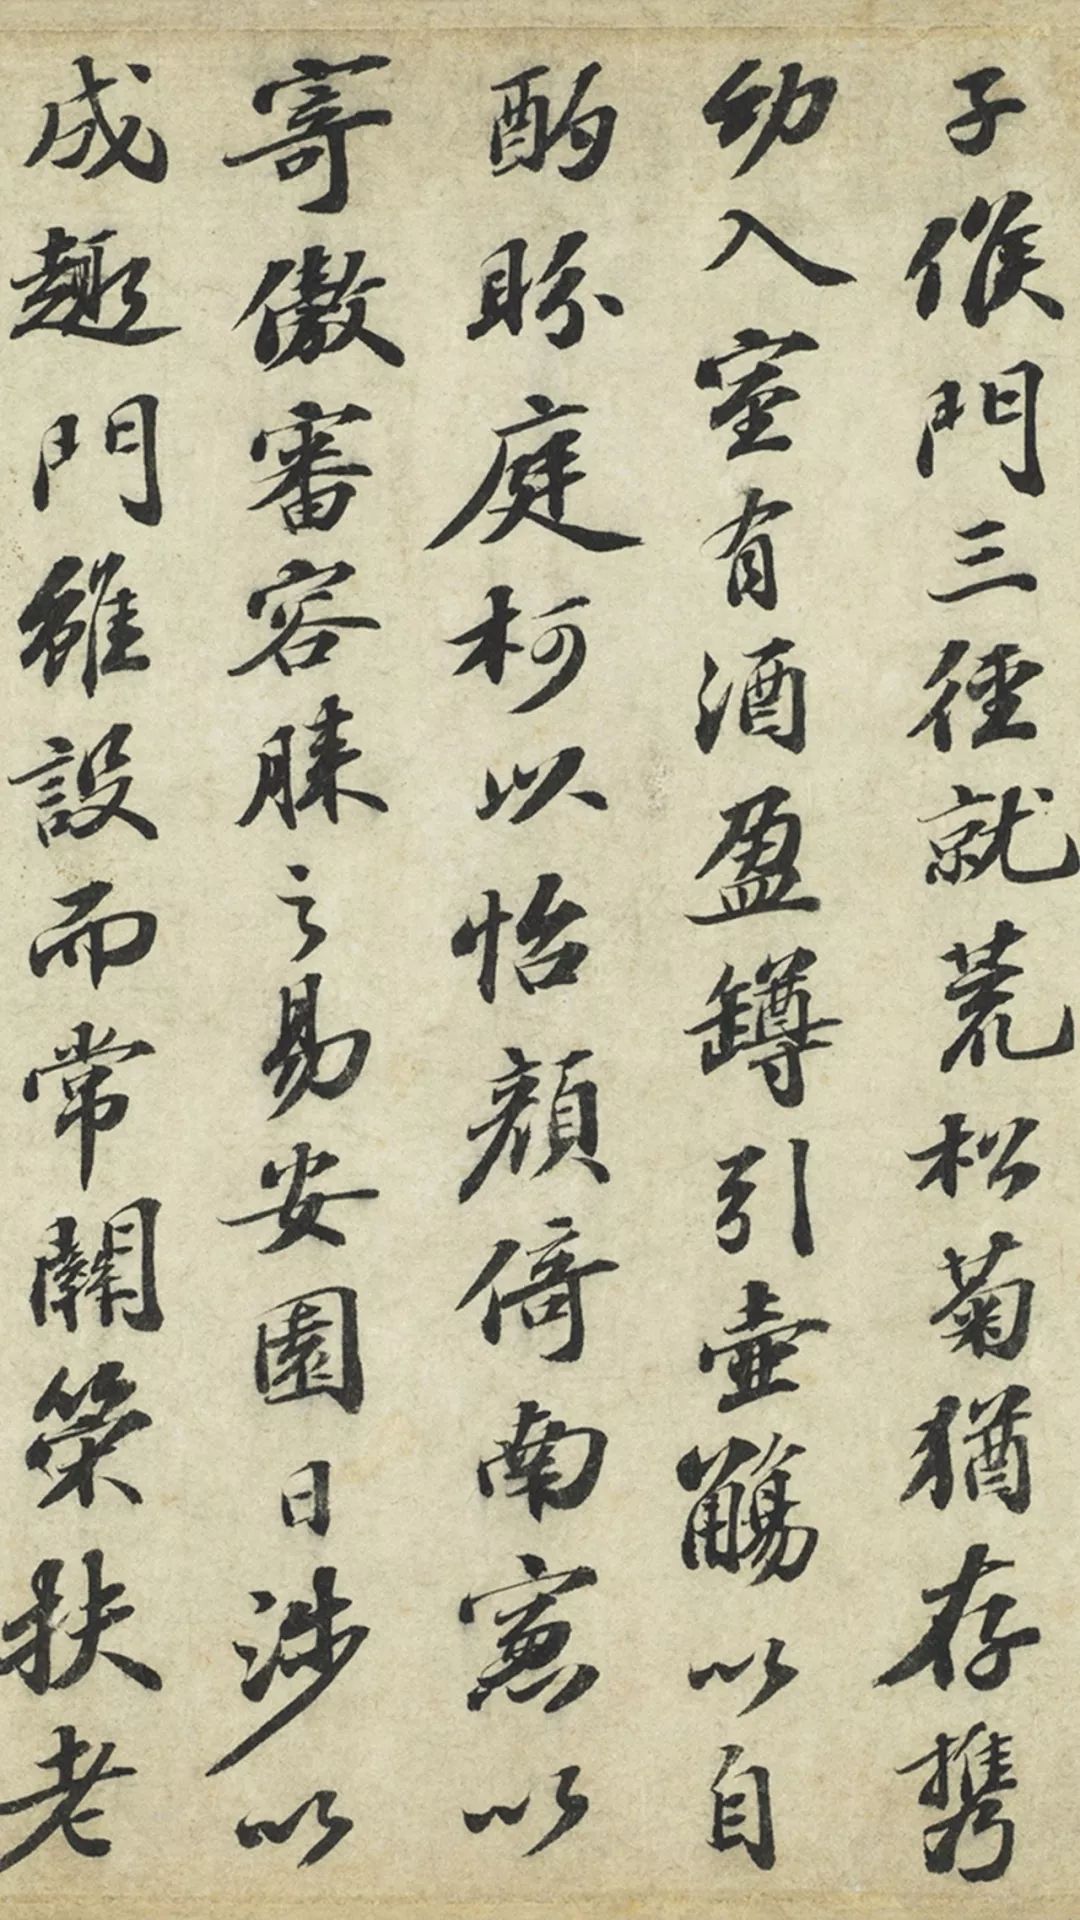 子候門三徑就荒松菊猶存携
幼入室有酒盈罇引壺觴以自
酌眄庭柯以怡顔倚南窻以
寄傲審容膝之易安園日涉以
成趣門雖設而常關策扶老